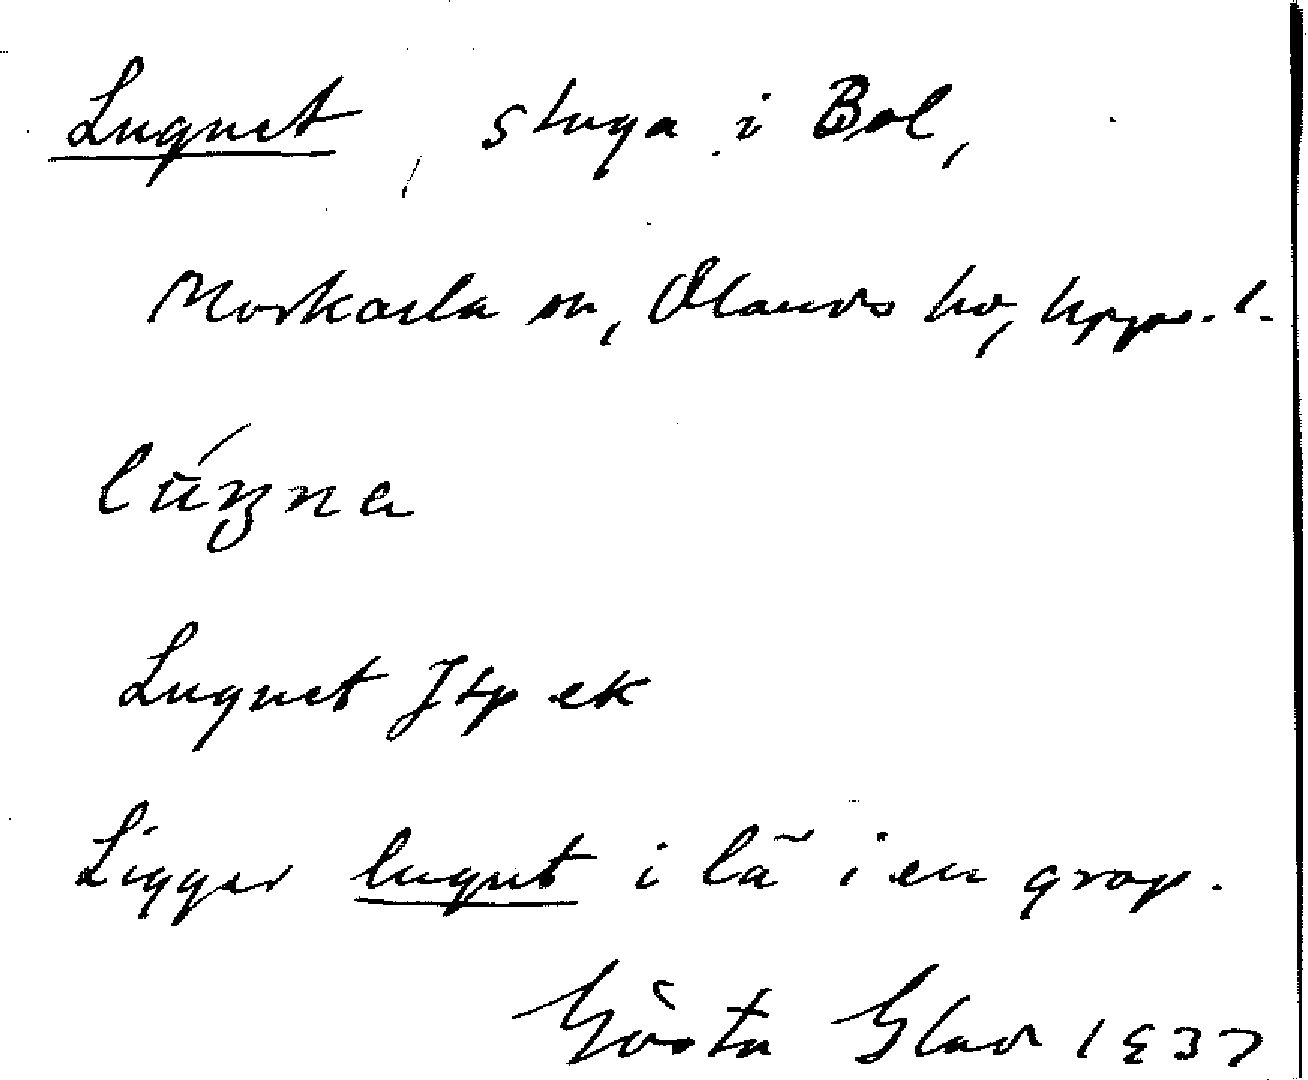 Lugnet, stuga i Bol,
Morkarla sn, Olands hd, Upps. l.
lúʒna
Lugnet Jtp ek
Ligger lugnt i lä i en grop.
Gösta Glad 1937